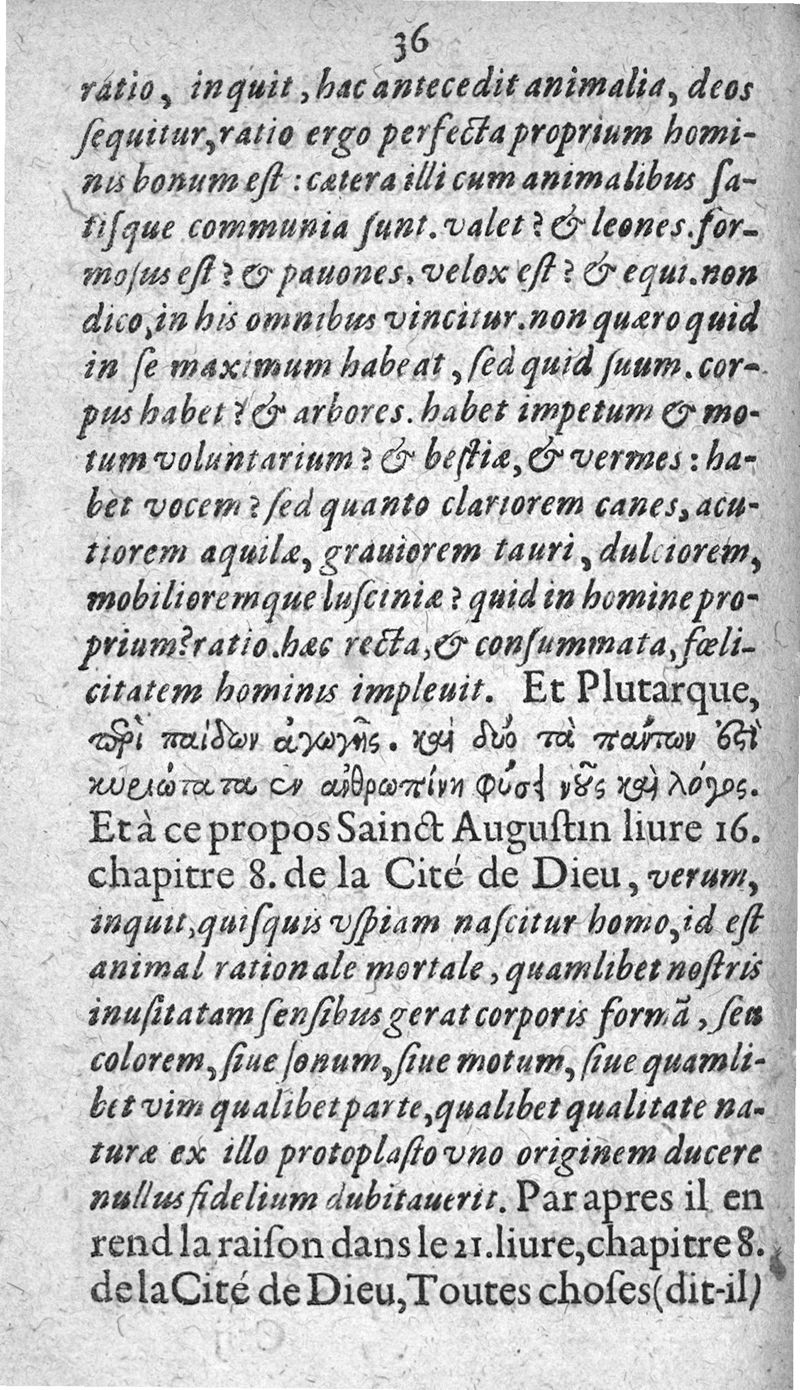 36
ratio, inquit, hac antecedit animalia, deos
ſequitur, ratio ergo perfecta proprium homi-
nis bonum eſt : cætera illi cum animalibus ſa-
tiſque communia ſunt. valet ? & leones. for-
moſus eſt ? & pauones. velox eſt ? & equi. non
dico, in his omnibus vincitur. non quæro quid
in ſe maximum habeat, ſed quid ſuum. cor-
pus habet ? & arbores. habet impetum & mo-
tum voluntarium ? & beſtiæ, & vermes : ha-
bet vocem ? ſed quanto clariorem canes, acu-
tiorem aquilæ, grauiorem tauri, dulciorem,
mobilioremque luſciniæ ? quid in homine pro-
prium? ratio. hæc recta, & conſummata, fœli-
citatem hominis impleuit. Et Plutarque,
περὶ παίδων ἀγωγῆς. καὶ δύο τὰ πάντων ἐστὶ
κυριώτατα ἐν ἀνθρωπίνῃ φύσει νοῦς καὶ λόγος.
Et à ce propos Sainct Auguſtin liure 16.
chapitre 8. de la Cité de Dieu, verum,
inquit, quiſquis vſpiam naſcitur homo, id eſt
animal rationale mortale, quamlibet noſtris
inuſitatam ſenſibus gerat corporis formã, ſeu
colorem, ſiue ſonum, ſiue motum, ſiue quamli-
bet vim qualibet parte, qualibet qualitate na-
turæ ex illo protoplaſto vno originem ducere
nullus fidelium dubitauerit. Par apres il en
rend la raiſon dans le 21. liure, chapitre 8.
de la Cité de Dieu, Toutes choſes (dit-il)